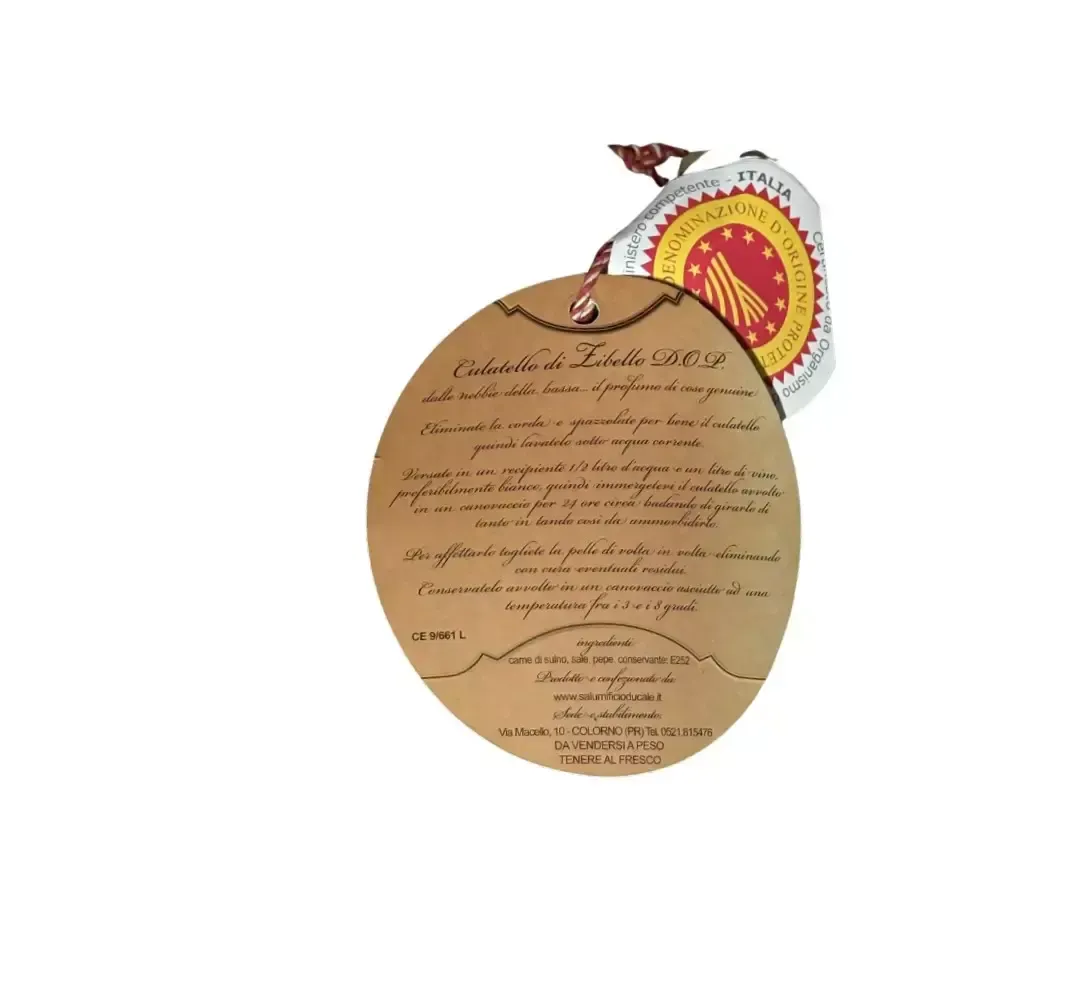 Ministero competente - ITALIA
DENOMINAZIONE D'ORIGINE PROTET
da Organismo
Culatello di Zibello D.O.P.
dalle nebbie della bassa... il profumo di cose genuine
Eliminate la corda e spazzolate per bene il culatello
quindi lavatelo sotto acqua corrente.
Versate in un recipiente 1/2 litro d'acqua e un litro di vino,
preferibilmente bianco, quindi immergetevi il culatello avvolto
in un canovaccio per 24 ore circa badando di girarlo di
tanto in tando così da ammorbidirlo.
Per affettarlo togliete la pelle di volta in volta eliminando
con cura eventuali residui.
Conservatelo avvolto in un canovaccio asciutto ad una
temperatura fra i 3 e i 8 gradi.
CE 9/661 L
ingredienti
carne di suino, sale, pepe. conservante: E252
Prodotto e confezionato da
www.salumificioducale.it
Sede e stabilimento:
Via Macello, 10 - COLORNO (PR) Tel. 0521.815476
DA VENDERSI A PESO
TENERE AL FRESCO